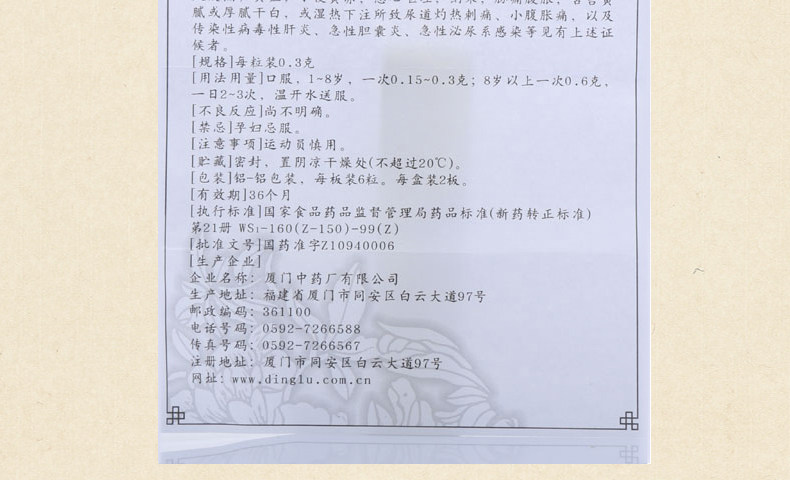 腻或厚腻干白，或湿热下注所致尿道灼热刺痛、小腹胀痛、以及
传染性病毒性肝炎、急性胆囊炎、急性泌尿系感染等见有上述证
候者。
[规格]每粒装0.3克
[用法用量]口服，1~8岁，一次0.15~0.3克；8岁以上一次0.6克，
一日2~3次，温开水送服。
[不良反应]尚不明确。
[禁忌]孕妇忌服。
[注意事项]运动员慎用。
[贮藏]密封，置阴凉干燥处(不超过20℃)。
[包装]铝-铝包装，每板装6粒。每盒装2板。
[有效期]36个月
[执行标准]国家食品药品监督管理局药品标准(新药转正标准)
第21册 WS₁-160(Z-150)-99(Z)
[批准文号]国药准字Z10940006
[生产企业]
企业名称：厦门中药厂有限公司
生产地址：福建省厦门市同安区白云大道97号
邮政编码：361100
电话号码：0592-7266588
传真号码：0592-7266567
注册地址：厦门市同安区白云大道97号
网址：www.dinglu.com.cn